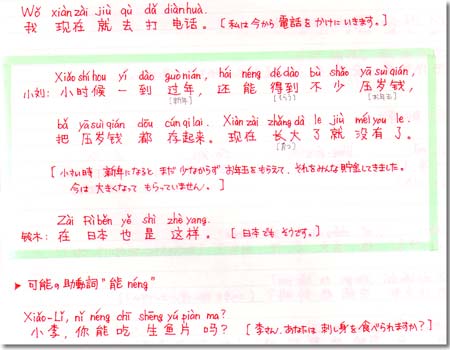 Wǒ xiànzài jiù qù dǎ diànhuà.
我 现在 就 去 打 电话。 [私は今から電話をかけにいきます。]
Xiǎo shíhou yí dào guònián, hái néng dédào bù shǎo yāsuìqián,
小刘: 小时候 一到 过年, 还 能 得到 不少 压岁钱,
[新年] [もらう] [お年玉]
bǎ yāsuìqián dōu cún qǐlai. Xiànzài zhǎngdà le jiù méiyou le.
把 压岁钱 都 存起来。 现在 长大 了 就 没有 了。
[育つ]
[小さい時、新年になると、まだ少なからずお年玉をもらえて、それをみんな貯金してきました。
今は大きくなってもらっていません。]
Zài Rìběn yě shì zhèyang.
铃木: 在 日本 也 是 这样。 [日本でもそうです。]
▶ 可能の助動詞 "能 néng"
Xiǎo-Lǐ, nǐ néng chī shēng yú piàn ma?
小李, 你 能 吃 生鱼片 吗? [李さん、あなたは刺し身を食べられますか?]